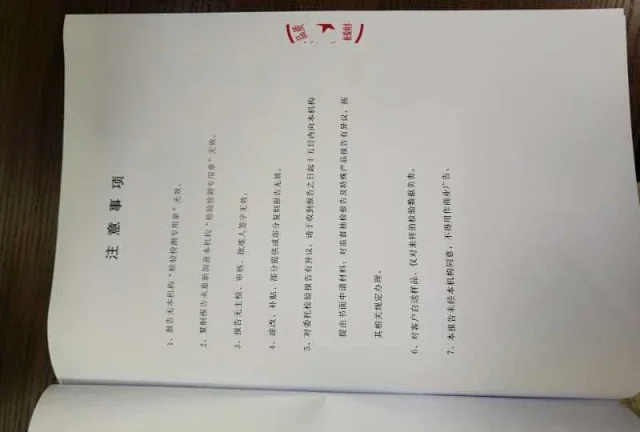 注意事项
1、报告无本机构“检验检测专用章”无效。
2、复制报告未重新加盖本机构“检验检测专用章”无效。
3、报告无主检、审核、批准人签字无效。
4、涂改、补贴、部分提供或部分复制报告无效。
5、对委托检验报告有异议，请于收到报告之日起十五日内向本机构
提出书面申请材料；对监督抽检报告及特殊产品报告有异议，按
其相关规定办理。
6、对客户自送样品，仅对来样的检验数据负责。
7、本报告未经本机构同意，不得用作商业广告。